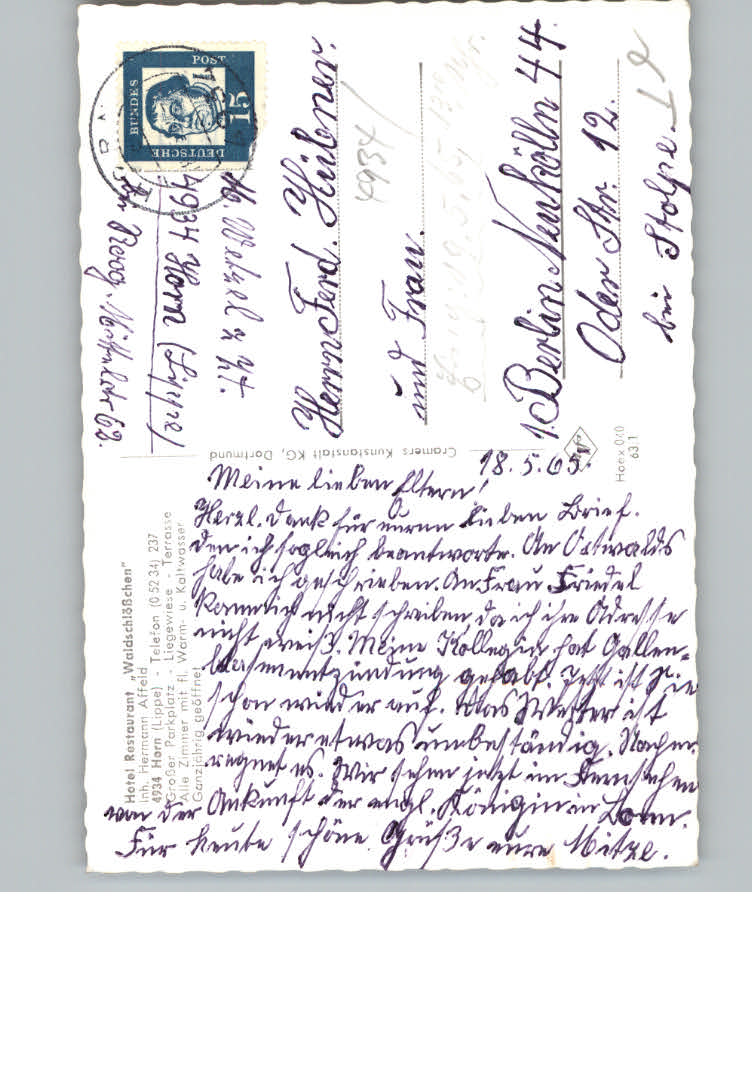 Hotel Restaurant „Waldschlößchen"
Inh. Hermann Affeld
4934 Horn (Lippe) - Telefon (0 52 34) 237
Großer Parkplatz - Liegewiese - Terrasse
Alle Zimmer mit fl. Warm- u. Kaltwasser
Ganzjährig geöffnet
18.5.65.
Meine lieben Eltern!
Herzl. Dank für euren lieben Brief.
Den ich sogleich beantworte. An Ostwalds
habe ich geschrieben. An Frau Friedel
kann ich nicht schreiben da ich ihre Adresse
nicht weiß. Meine Kollegin hat Gallen-
blasenentzündung gehabt. Jetzt ist sie
schon wieder auf. Das Wetter ist
wieder etwas unbeständig. Nachm.
regnet es. Wir sehen jetzt im Fernsehen
von der Ankunft der engl. Königin in Bonn.
Für heute schöne Grüße eure Mitze.
Cramers Kunstanstalt KG, Dortmund
63 1
DEUTSCHE
BUNDES
POST
15
Wetzel z. Zt.
4934 Horn (Lippe)
62.
Herrn Ferd. Hübner.
4934
und Frau.
1. Berlin Neukölln 44.
Oder Str. 12.
bei Stolpe.